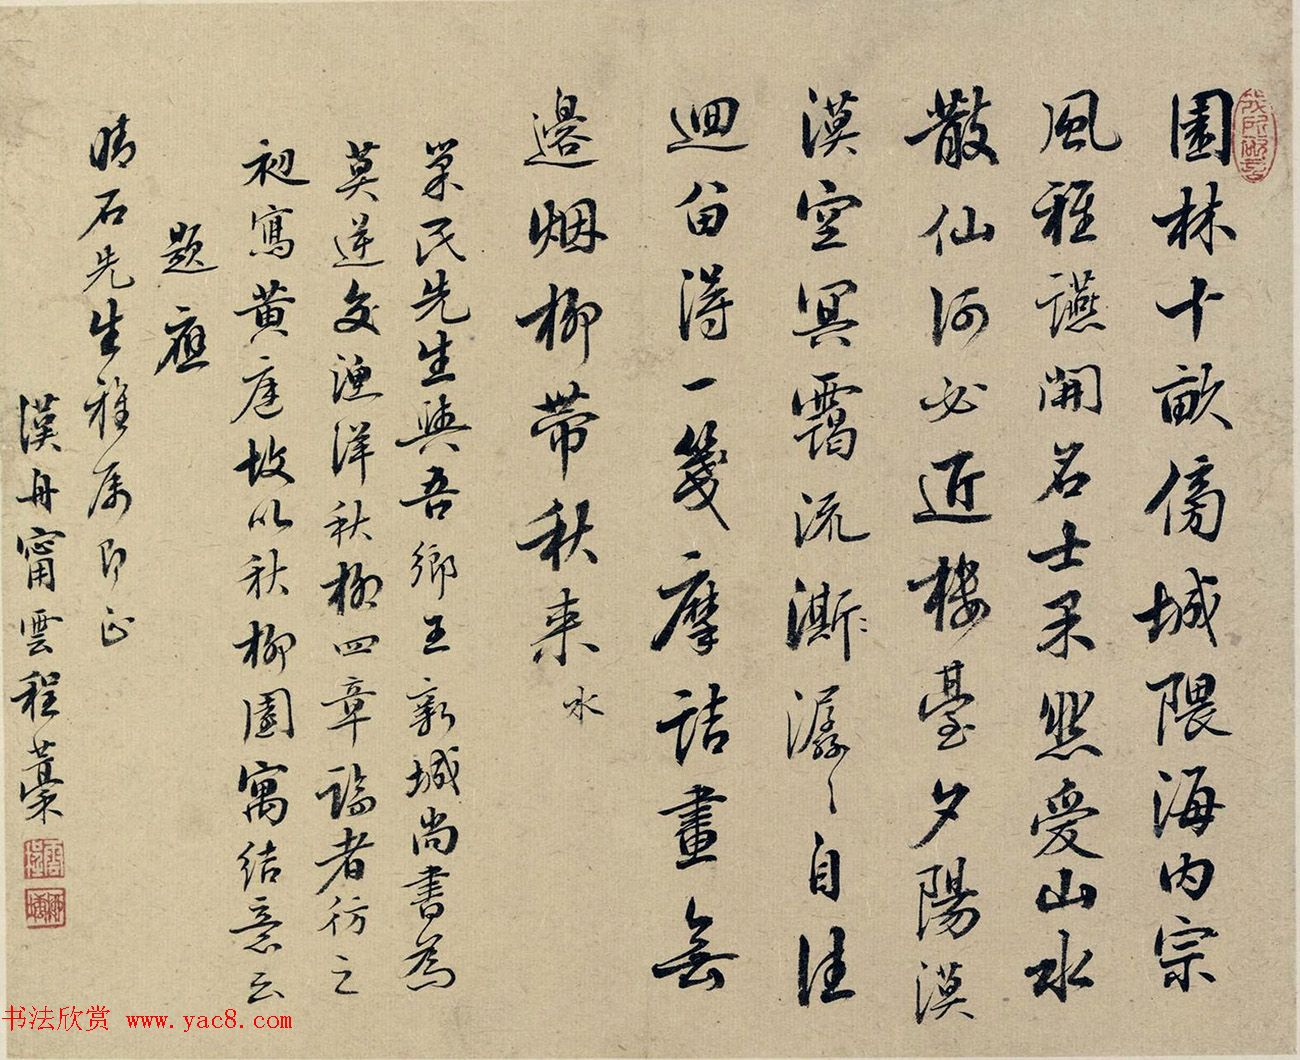 園林十畝傍城隈海内宗
風雅讌開名士果然愛山水
散仙何必近樓臺夕陽漠
漠空冥靄流澌〻潺〻自往
迴留得一箋摩詰畫無
邊烟柳帶秋来 水
巢民先生與吾鄉王新城尚書為
莫逆交漁洋秋柳四章論者彷之
初寫黄庭故以秋柳園寓結意云
題應
晴石先生雅属即正
漢舟甯雲程藁
书法欣赏 www.yac8.com